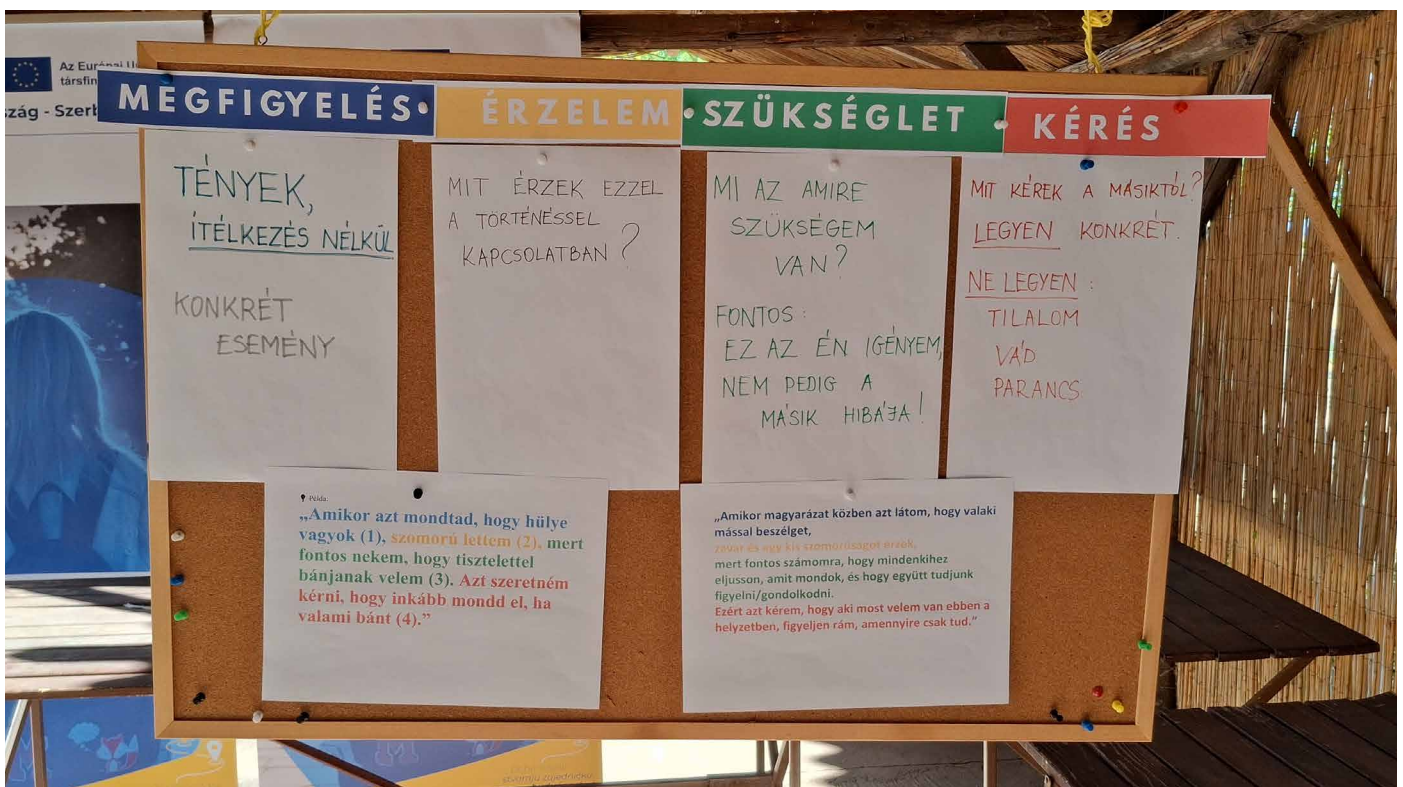 Az Európai U
társfin
zág - Szerb
MEGFIGYELÉS
ÉRZELEM
SZÜKSÉGLET
KÉRÉS
TÉNYEK,
ÍTÉLKEZÉS NÉLKÜL
KONKRÉT
ESEMÉNY
MIT ÉRZEK EZZEL
A TÖRTÉNÉSSEL
KAPCSOLATBAN?
MI AZ AMIRE
SZÜKSÉGEM
VAN?
FONTOS:
EZ AZ ÉN IGÉNYEM,
NEM PEDIG A
MÁSIK HIBÁJA!
MIT KÉREK A MÁSIKTÓL?
LEGYEN KONKRÉT.
NE LEGYEN:
TILALOM
VÁD
PARANCS
Példa:
„Amikor azt mondtad, hogy hülye
vagyok (1), szomorú lettem (2), mert
fontos nekem, hogy tisztelettel
bánjanak velem (3). Azt szeretném
kérni, hogy inkább mondd el, ha
valami bánt (4).”
„Amikor magyarázat közben azt látom, hogy valaki
mással beszélget,
zavar és egy kis szomorúságot érzek,
mert fontos számomra, hogy mindenkihez
eljusson, amit mondok, és hogy együtt tudjunk
figyelni/gondolkodni.
Ezért azt kérem, hogy aki most velem van ebben a
helyzetben, figyeljen rám, amennyire csak tud.”